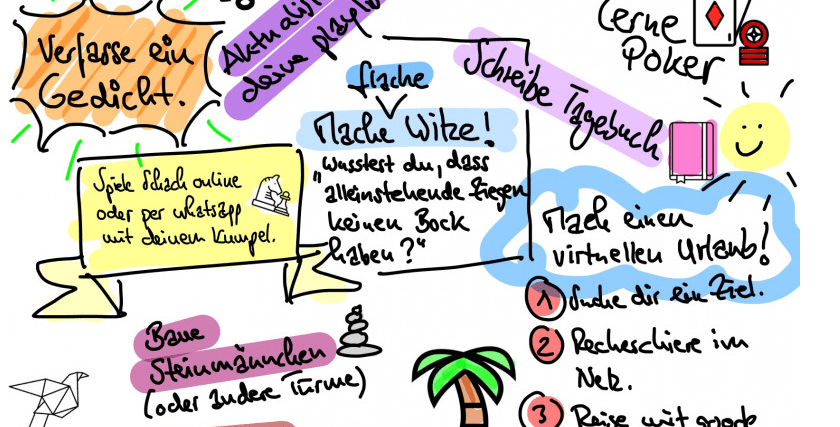 Verfasse ein
Gedicht.
deine playli
flache
Mache Witze!
"Wusstest du, dass
alleinstehende Ziegen
keinen Bock
haben?"
Schreibe Tagebuch
Lerne
Poker
Spiele Schach online
oder per whatsapp
mit deinem Kumpel.
Mach einen
virtuellen Urlaub!
1 Suche dir ein Ziel.
2 Recheschiere im
Netz.
3 Reise mit
Baue
Steinmännchen
(oder andere Türme)